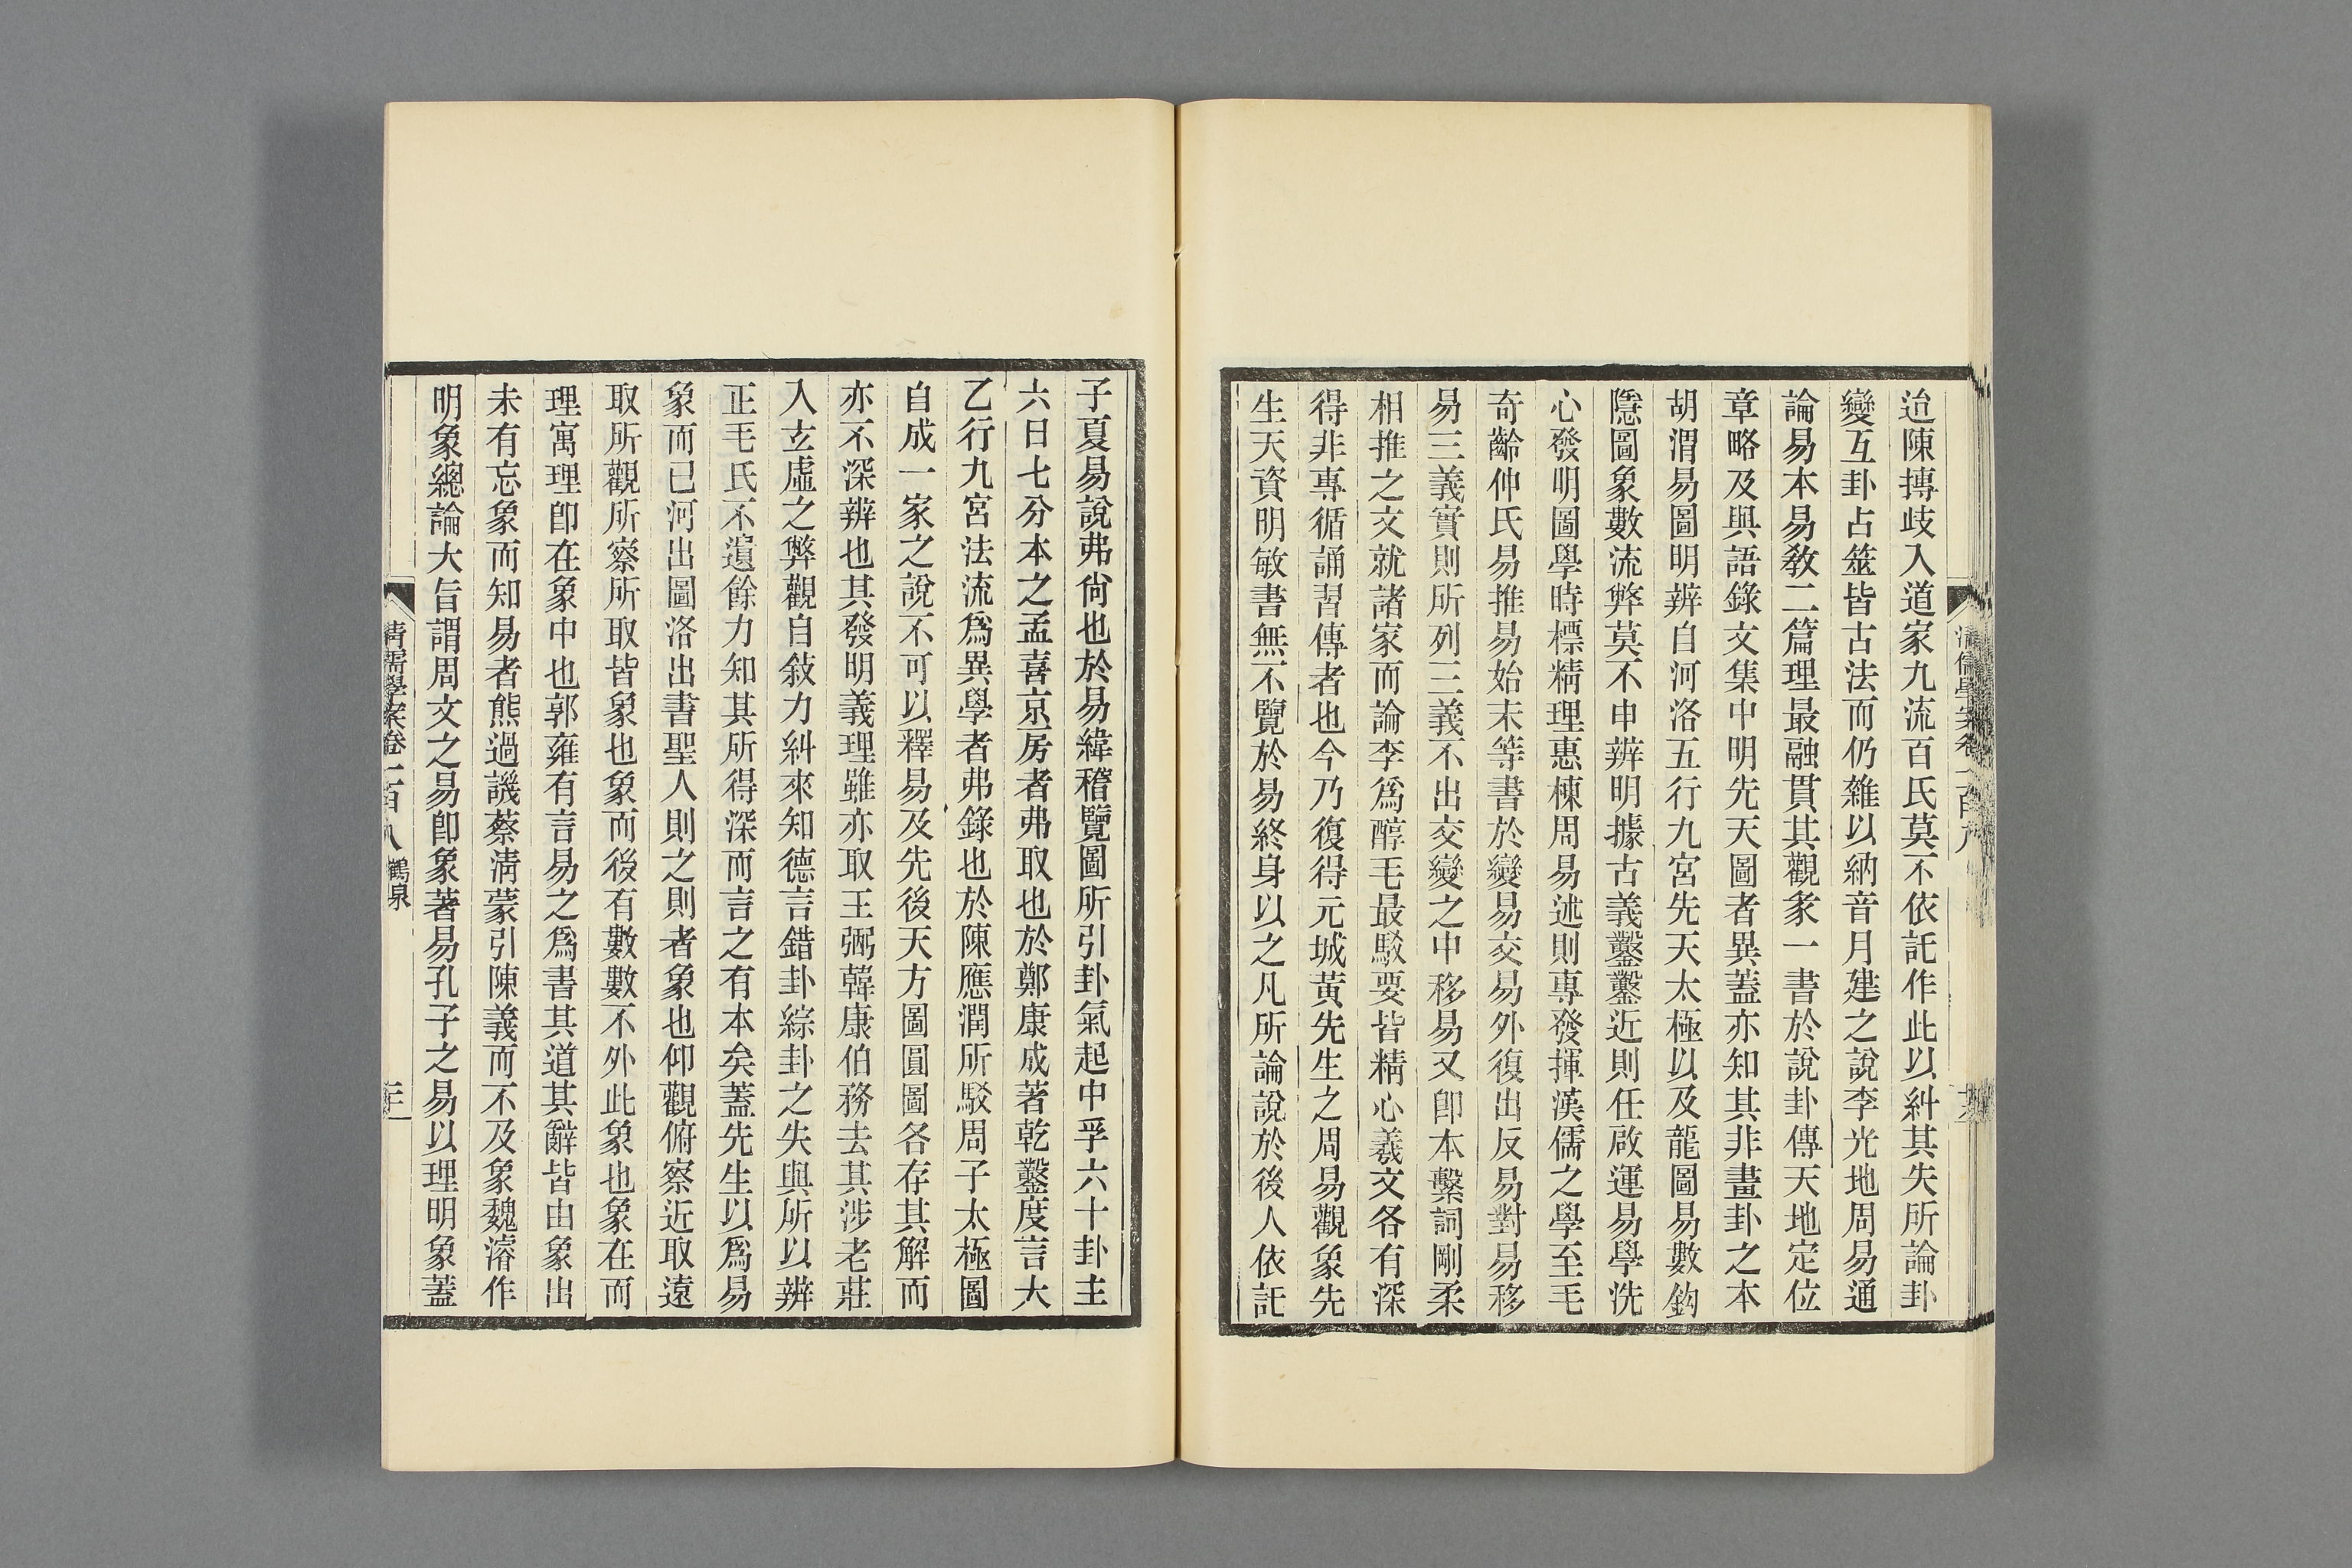 迨陳摶歧入道家九流百氏莫不依託作此以糾其失所論卦
變互卦占筮皆古法而仍雜以納音月建之說李光地周易通
論易本易敎二篇理最融貫其觀彖一書於說卦傳天地定位
章略及與語錄文集中明先天圖者異蓋亦知其非畫卦之本
胡渭易圖明辨自河洛五行九宮先天太極以及龍圖易數鈎
隱圖象數流弊莫不申辨明據古義鑿鑿近則任啟運易學洗
心發明圖學時標精理惠棟周易述則專發揮漢儒之學至毛
奇齡仲氏易推易始末等書於變易交易外復出反易對易移
易三義實則所列三義不出交變之中移易又卽本繫詞剛柔
相推之文就諸家而論李爲醇毛最駁要皆精心羲文各有深
得非專循誦習傳者也今乃復得元城黃先生之周易觀象先
生天資明敏書無不覽於易終身以之凡所論說於後人依託
子夏易說弗尙也於易緯稽覽圖所引卦氣起中孚六十卦主
六日七分本之孟喜京房者弗取也於鄭康成著乾鑿度言大
乙行九宮法流爲異學者弗錄也於陳應潤所駁周子太極圖
自成一家之說不可以釋易及先後天方圖圓圖各存其解而
亦不深辨也其發明義理雖亦取王弼韓康伯務去其涉老莊
入玄虛之弊觀自敍力糾來知德言錯卦綜卦之失與所以辨
正毛氏不遺餘力知其所得深而言之有本矣蓋先生以爲易
象而已河出圖洛出書聖人則之則者象也仰觀俯察近取遠
取所觀所察所取皆象也象而後有數數不外此象也象在而
理寓理卽在象中也郭雍有言易之爲書其道其辭皆由象出
未有忘象而知易者熊過譏蔡淸蒙引陳義而不及象魏濬作
明象總論大旨謂周文之易卽象著易孔子之易以理明象蓋
清儒學案卷二百八 鶴泉